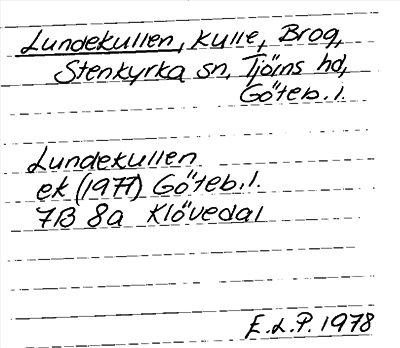 Lundekullen, kulle, Brog,
Stenkyrka sn, Tjörns hd,
Göteb. l.
Lundekullen
ek (1977) Göteb. l.
7B 8a Klövedal
E.L.P. 1978